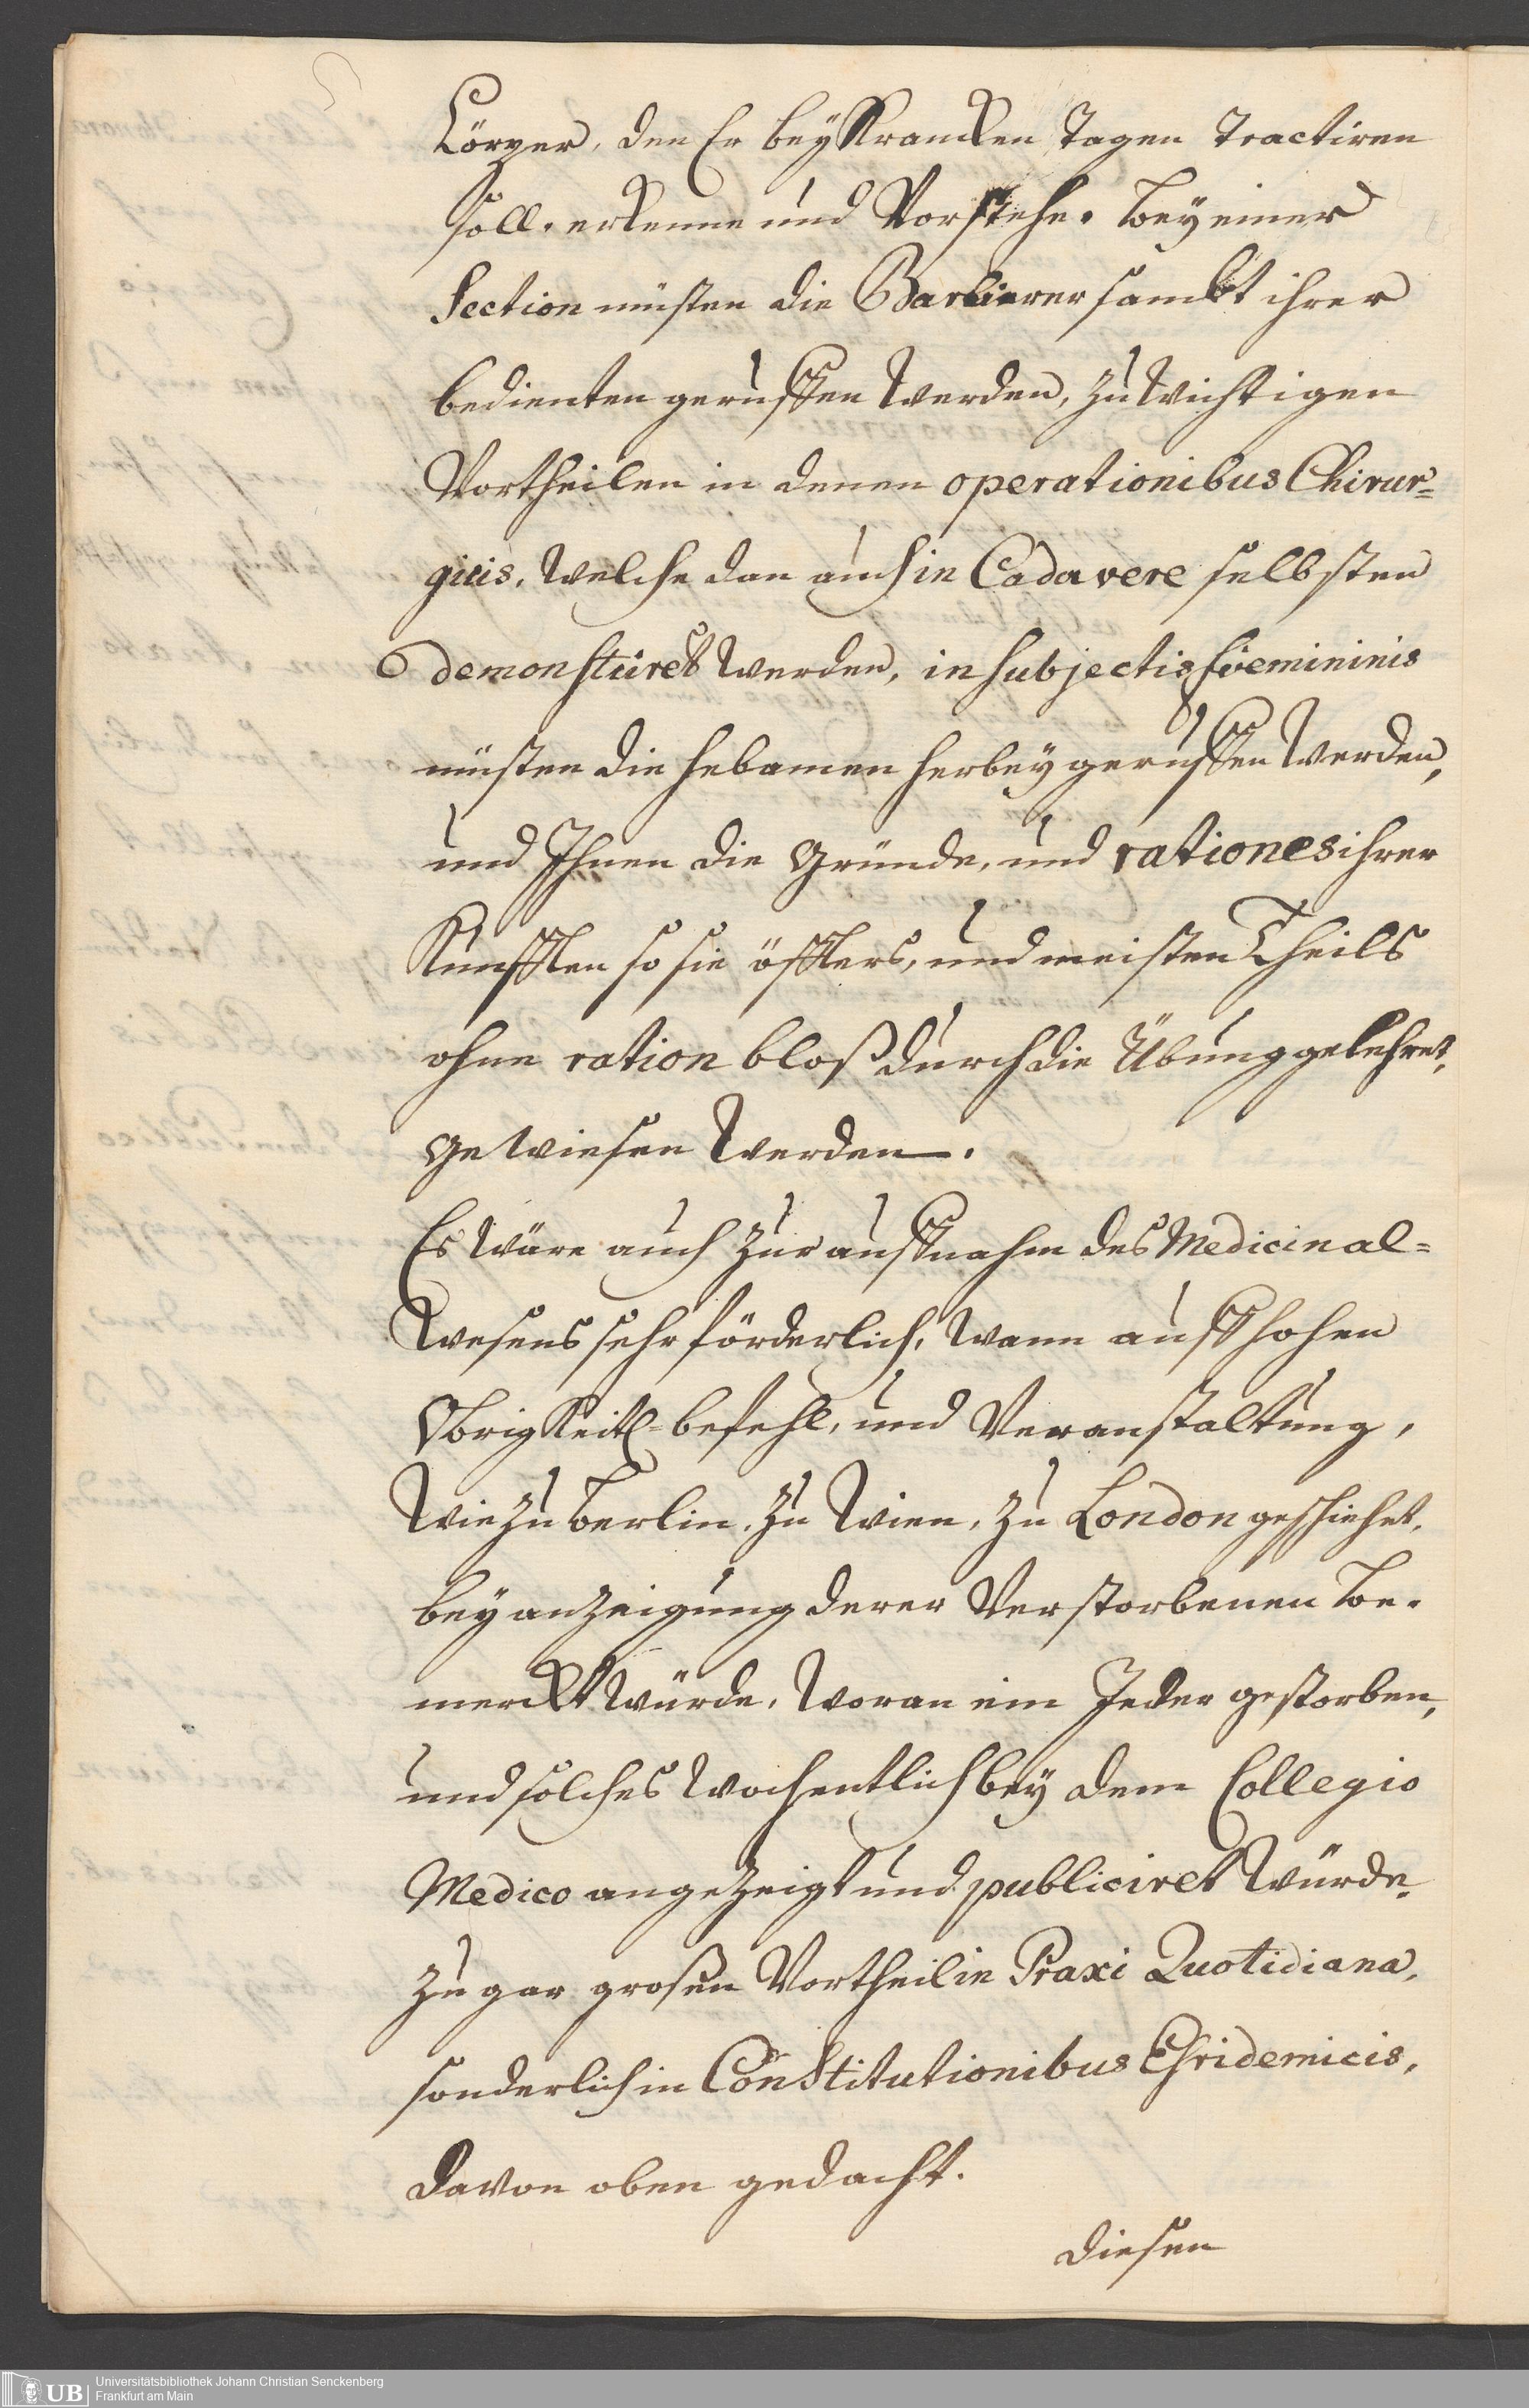 Cörper, den Er bey Krancken Tagen Tractiren
soll, erkenne und Vorstehe. Bey einer
Section müsten die Barbierer sambt ihrer
bedienten geruffen werden, zu wichtigen
Vortheilen in denen operationibus Chirur=
gicis, welche dan auch in Cadavere selbsten
demonstriret werden, in subjectis foemininis
müsten die Hebamen herbey geruffen werden,
und Ihnen die Gründe, und rationes ihrer
Künfften so sie öffters, und meisten Theils
ohne ration bloß durch die Übung gelehret,
gewiesen werden.
Es wäre auch zur auffnahm des Medicinal=
Wesens sehr förderlich, wann auff hohen
Obrigkeitl= befehl, und Veranstaltung,
wie zu Berlin, zu Wien, zu London geschiehet,
bey anzeigung derer Verstorbenen be=
merckt würde, woran ein Jeder gestorben,
und solches wochentlich bey dem Collegio
Medico angezeigt und publiciret würde,
zu gar grosen Vortheil in Praxi Quotidiana,
sonderlich in Constitutionibus Epidemicis,
davon oben gedacht.
diesen
UB Universitätsbibliothek Johann Christian Senckenberg
Frankfurt am Main